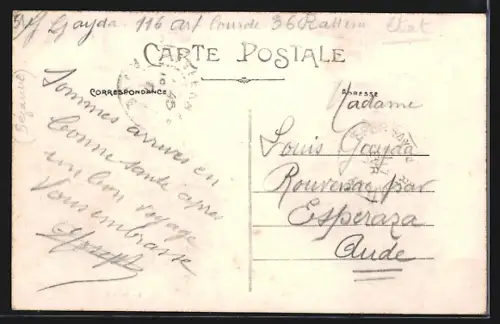 Gayda. 116 art Lourde 36
CARTE POSTALE
CORRESPONDANCE
ADRESSE
Sommes arrives en
bonne santé après
un bon voyage
Vous embrasse
Joseph
Madame
Louis Gayda
Rouvenac par
Esperaza
Aude